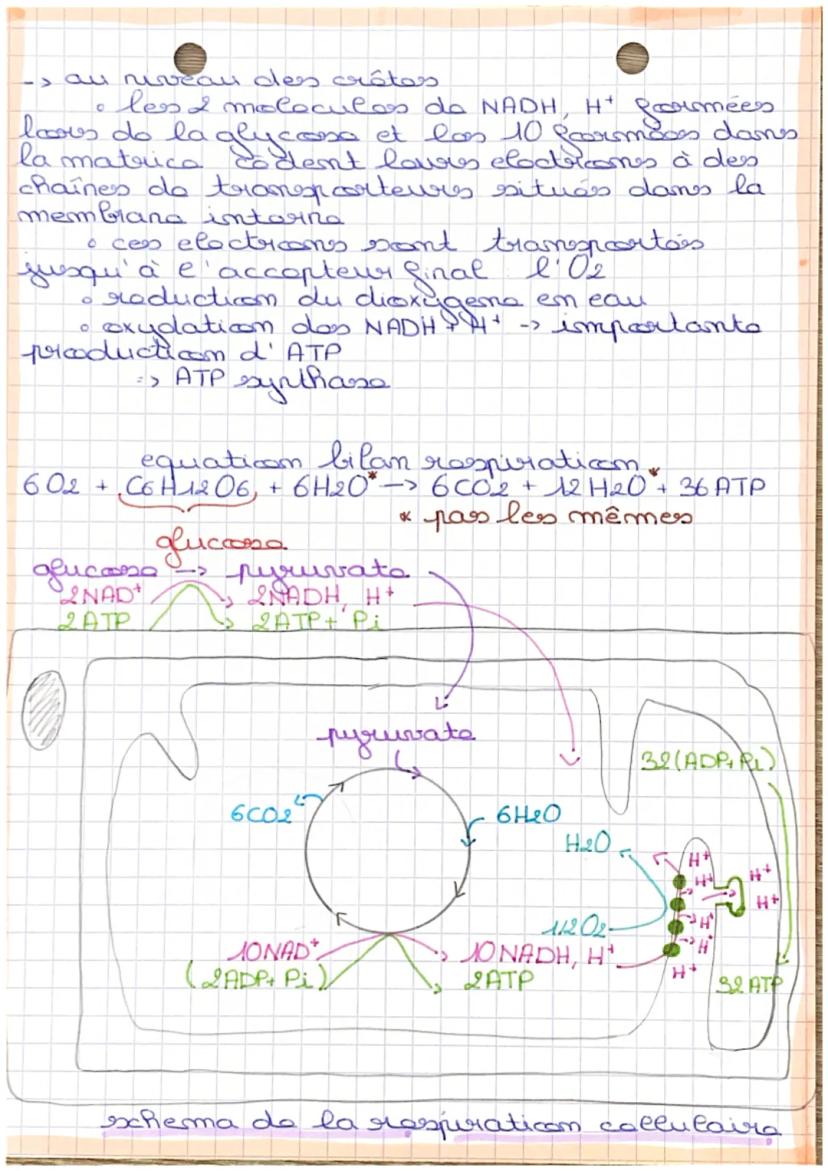 -> au niveau des crêtes
◦ les 2 molecules de NADH, H⁺ formées
lors de la glycose et les 10 formées dans
la matrice cèdent leurs electrons à des
chaînes de transporteurs situés dans la
membrane interne
◦ ces electrons sont transportés
jusqu'à l'accepteur final : l'O2
◦ reduction du dioxygene en eau
◦ oxydation des NADH, H⁺ -> importante
production d'ATP
=> ATP synthase
equation bilan respiration
6O2 + C6H12O6 + 6H2O* -> 6CO2 + 12H2O* + 36ATP
* pas les mêmes
glucose
glucose -> pyruvate
2NAD⁺ 2NADH, H⁺
2ATP 2ATP + Pi
pyruvate
32(ADP+Pi)
6CO2 6H2O
H2O
H⁺
H⁺ H⁺
H⁺
H⁺
1/2O2
H⁺
10NAD⁺ 10NADH, H⁺
H⁺
(2ADP+Pi) 2ATP
32ATP
schema de la respiration cellulaire